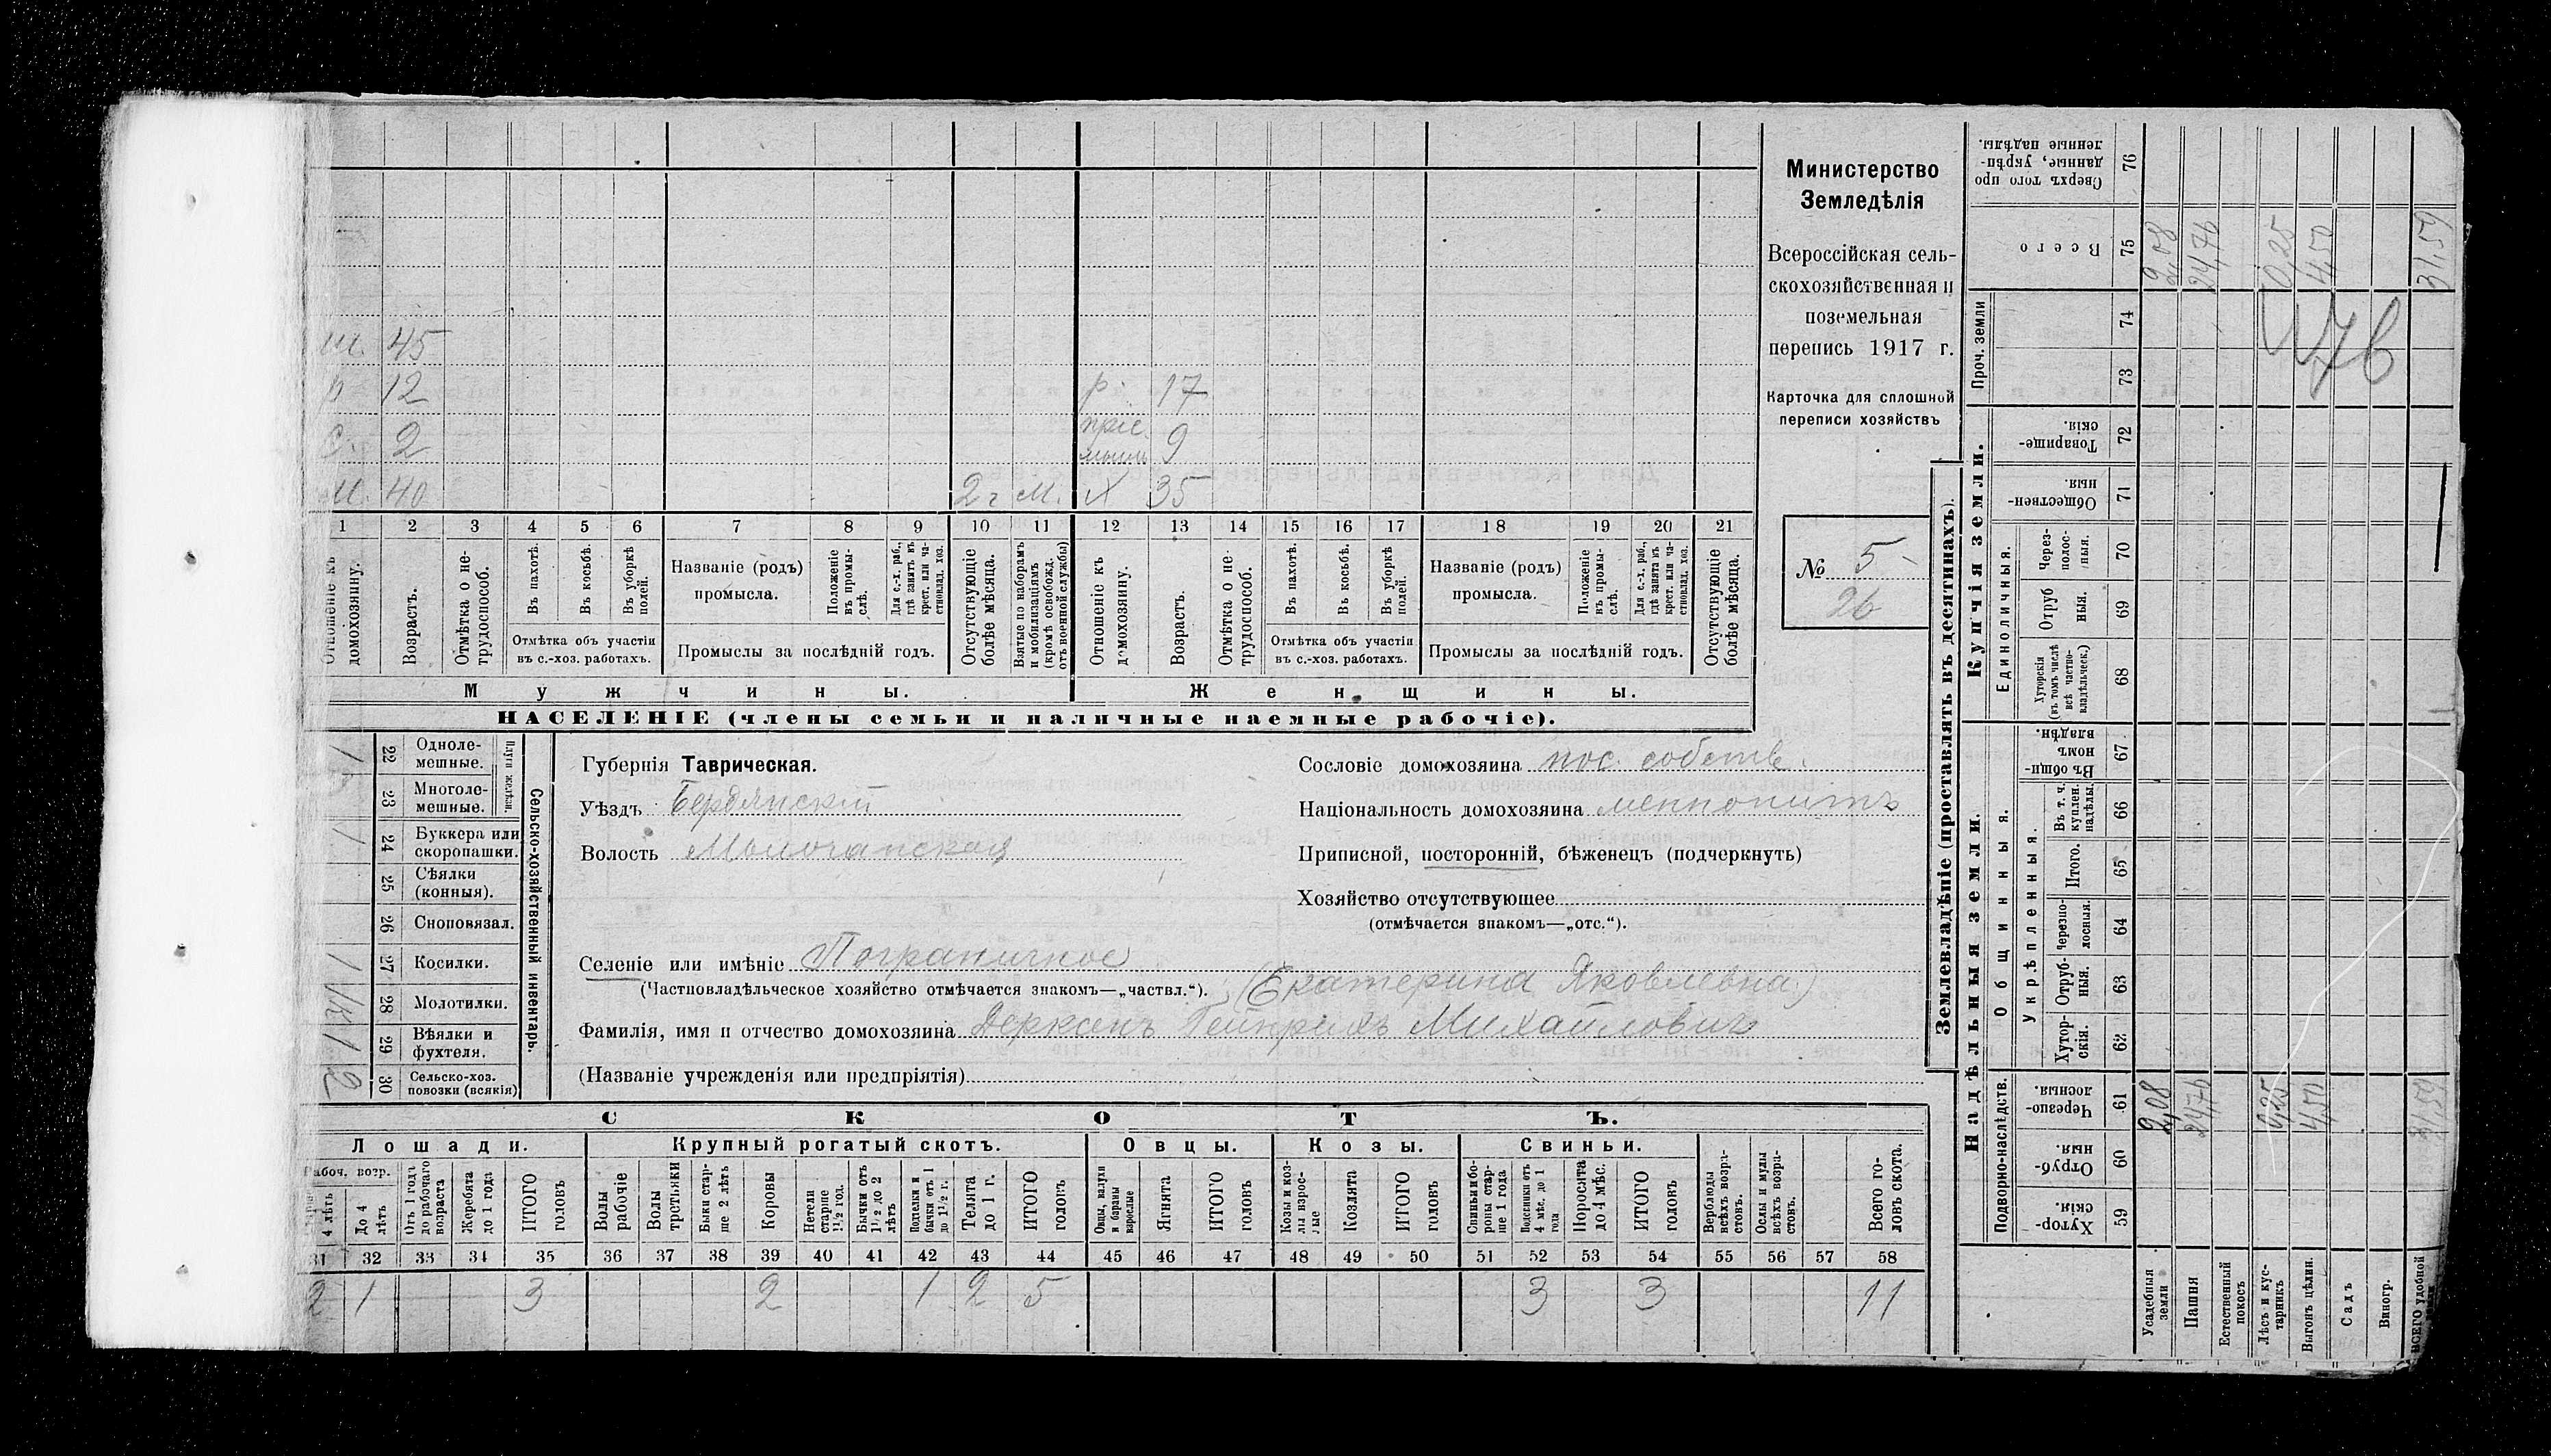 ш. 45
р 12 р. 17
с. 2 9
м. 40 2 г М. Х 35
1 2 3 4 5 6 7 8 9 10 11 12 13 14 15 16 17 18 19 20 21
Отношеніе къ домохозяину.
Возрастъ.
Отмѣтка о не-трудоспособ.
Въ пахотѣ.
Въ косьбѣ.
Въ уборкѣ полей.
Отмѣтка объ участіи въ с.-хоз. работахъ.
Названіе (родъ) промысла.
Положеніе въ промы-слѣ.
Для с.-х. раб., гдѣ занятъ въ крест. или ча-стновлад. хоз.
Промыслы за послѣдній годъ.
Отсутствующіе болѣе мѣсяца.
Взятые по наборамъ и мобилизаціямъ (кромѣ освобожд. отъ военной службы)
Отношеніе къ домохозяину.
Возрастъ.
Отмѣтка о не-трудоспособ.
Въ пахотѣ.
Въ косьбѣ.
Въ уборкѣ полей.
Отмѣтка объ участіи въ с.-хоз. работахъ.
Названіе (родъ) промысла.
Положеніе въ промы-слѣ.
Для с.-х. раб., гдѣ занята въ крест. или ча-стновлад. хоз.
Промыслы за послѣдній годъ.
Отсутствующіе болѣе мѣсяца.
Мужчины. Женщины.
НАСЕЛЕНІЕ (члены семьи и наличные наемные рабочіе).
Министерство
Земледѣлія
Всероссійская сель-
скохозяйственная и
поземельная
перепись 1917 г.
Карточка для сплошной
переписи хозяйствъ
№ 5
26
1 22 Одноле-мешные.
23 Многоле-мешные.
Плуги желѣзн.
1 24 Буккера или скоропашки.
25 Сѣялки (конныя).
26 Сноповязал.
1 27 Косилки.
28 Молотилки.
1 29 Вѣялки и фухтеля.
2 30 Сельско-хоз. повозки (всякія)
Сельско-хозяйственный инвентарь.
Губернія Таврическая.
Уѣздъ Бердянскій
Волость Молочанская
Сословіе домохозяина пос. собств.
Національность домохозяина меннонитъ
Приписной, посторонній, бѣженецъ (подчеркнуть)
Хозяйство отсутствующее
(отмѣчается знакомъ—„отс.“).
Селеніе или имѣніе Пограничное
(Частновладѣльческое хозяйство отмѣчается знакомъ—„частвл.“). (Екатерина Яковлевна)
Фамилія, имя и отчество домохозяина Дерксенъ Гейнрихъ Михайловичъ
(Названіе учрежденія или предпріятія)
СКОТЪ.
Лошади. Крупный рогатый скотъ. Овцы. Козы. Свиньи.
Рабоч. возр.
4 лѣтъ
До 4 лѣтъ
Отъ 1 года до рабочаго возраста
Жеребята до 1 года
ИТОГО головъ
Волы рабочіе
Волы третьяки
Быки стар-ше 2 лѣтъ
Коровы
Нетели старше 1½ год.
Бычки отъ 1½ до 2 лѣтъ
Подтелки и бычки отъ 1 до 1½ г.
Телята до 1 г.
ИТОГО головъ
Овцы, валухи и бараны взрослые
Ягнята
ИТОГО головъ
Козы и коз-лы взрос-лые
Козлята
ИТОГО головъ
Свиньи и бо-ровы стар-ше 1 года
Подсвинки отъ 4 мѣс. до 1 года
Поросята до 4 мѣс.
ИТОГО головъ
Верблюды всѣхъ возра-стовъ.
Ослы и мулы всѣхъ возра-стовъ.
Всего го-ловъ скота.
31 32 33 34 35 36 37 38 39 40 41 42 43 44 45 46 47 48 49 50 51 52 53 54 55 56 57 58
2 1 3 2 1 2 5 3 3 11
Землевладѣніе (проставлять въ десятинахъ).
Купчія земли.
Надѣльныя земли.
Сверхъ того про-данные, укрѣп-ленные надѣлы. 76
Всего 75 2,08 24,76 0,25 4,50 31,59
Проч. земли
74
73
76
Товарище-скія. 72
Обществен-ныя. 71
Единоличныя.
Через-полос-ныя. 70
Отруб ныя. 69
Хуторскія (въ томъ числѣ всѣ частно-владѣльческ.) 68
Общинныя.
Въ общин-номъ владѣн. 67
Укрѣпленныя.
Въ т. ч. куплен. надѣлы. 66
Итого. 65
Черезпо-лосныя. 64
Отруб-ныя. 63
Хутор-скія. 62
Подворно-наслѣдств.
Черезпо-лосныя. 61 2,08 24,76 0,25 4,50 31,59
Отруб-ныя. 60
Хутор-скія. 59
Усадебныя земли
Пашня
Естественный покосъ
Лѣсъ и кус-тарникъ
Выгонъ цѣлин.
Садъ
Виногр.
ВСЕГО удобной земли